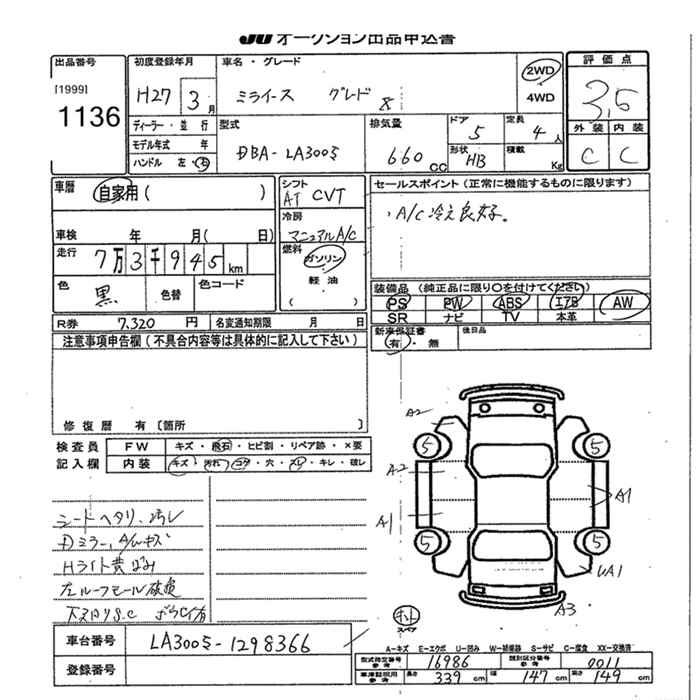 JU オークション出品申込書
出品番号 初度登録年月 車名・グレード 評価点
[1999] 1136 H27 3月 ミライース グレード X 2WD 4WD 3.5
ディーラー・並行 型式 排気量 ドア 5 定員 4人 外装 内装
モデル年式 年 DBA-LA300S 660cc 形状 HB 積載 Kg C C
ハンドル 左・右
車歴 自家用 ( ) シフト AT CVT セールスポイント (正常に機能するものに限ります)
車検 年 月( 日) 冷房 マニュアルA/C ・A/C冷え良好。
走行 7万3千945km 燃料 ガソリン 軽油
色 黒 色替 色コード ( )
装備品 (純正品に限り○を付けてください)
PS PW ABS エアB AW
SR ナビ TV 本革
R券 7,320円 名変通知期限 月 日 新車保証書 有・無 後日品
注意事項申告欄 (不具合内容等は具体的に記入して下さい)
修復歴 有 [箇所 ]
検査員 FW キズ・飛石・ヒビ割・リペア跡・×要
記入欄 内装 キズ・汚れ・コゲ・穴・スレ・キレ・破レ
A2
5 5
A2 A1
A1
5 5
UA1
A3
シートヘタリ、汚レ
Dミラー、A/Wキズ
Hライト黄ばみ
左ルーフモール破損
ホト スペア
車台番号 LA300S-1298366
登録番号
A-キズ E-エクボ U-凹み W-補修跡 S-サビ C-腐食 XX-交換済
型式指定番号 参考 16986 類別区分番号 参考 0011
車庫証明用 参考 長さ 339cm 幅 147cm 高さ 149cm